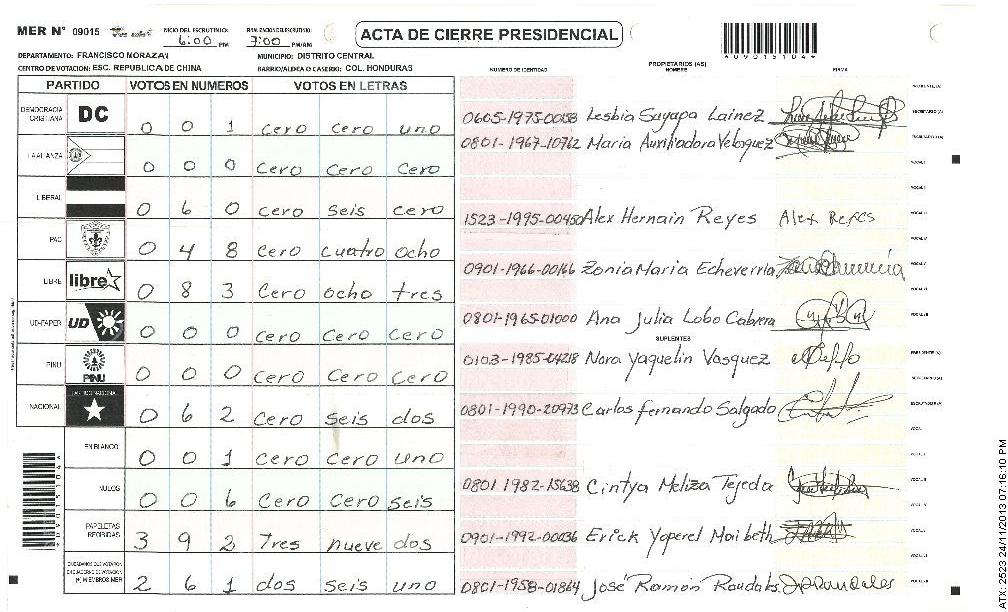 MER N° 09015
INICIO DEL ESCRUTINIO: 6:00 PM
FINALIZACION DEL ESCRUTINIO: 7:00 PM/AM
ACTA DE CIERRE PRESIDENCIAL
*09015104*
DEPARTAMENTO: FRANCISCO MORAZAN
MUNICIPIO: DISTRITO CENTRAL
CENTRO DE VOTACION: ESC. REPUBLICA DE CHINA
BARRIO/ALDEA O CASERIO: COL. HONDURAS
PARTIDO VOTOS EN NUMEROS VOTOS EN LETRAS
DEMOCRACIA CRISTIANA DC 0 0 1 cero cero uno
LA ALIANZA 0 0 0 cero cero cero
LIBERAL 0 6 0 cero seis cero
PAC 0 4 8 cero cuatro ocho
LIBRE libre 0 8 3 cero ocho tres
UD-FAPER UD 0 0 0 cero cero cero
PINU PINU 0 0 0 cero cero cero
NACIONAL PARTIDO NACIONAL 0 6 2 cero seis dos
EN BLANCO 0 0 1 cero cero uno
NULOS 0 0 6 cero cero seis
PAPELETAS RECIBIDAS 3 9 2 Tres nueve dos
CIUDADANOS QUE VOTARON EN CUADERNO DE VOTACION (+) MIEMBROS MER 2 6 1 dos seis uno
*09015104*
NUMERO DE IDENTIDAD PROPIETARIOS (AS) NOMBRE FIRMA
PRESIDENTE (A)
0605-1975-00158 Lesbia Suyapa Lainez SECRETARIO (A)
0801-1967-10762 Maria Auxiliadora Velasquez ESCRUTADOR (A)
VOCAL I
VOCAL II
1523-1995-00450 Alex Hernain Reyes Alex Reyes VOCAL III
VOCAL IV
0901-1966-00166 Zonia Maria Echeverria VOCAL V
VOCAL VI
0801-1965-01000 Ana Julia Lobo Cabrera VOCAL VII
SUPLENTES
0103-1985-04218 Nora Yaquelin Vasquez PRESIDENTE (A)
SECRETARIO (A)
0801-1990-20973 Carlos Fernando Salgado ESCRUTADOR (A)
VOCAL I
VOCAL II
0801 1982-15638 Cintya Meliza Tejeda VOCAL III
VOCAL IV
0901-1992-00036 Erick Yoperel Maibeth VOCAL V
VOCAL VI
0801-1958-01864 José Ramón Raudales VOCAL VII
ATX-2523 24/11/2013 07:16:10 PM